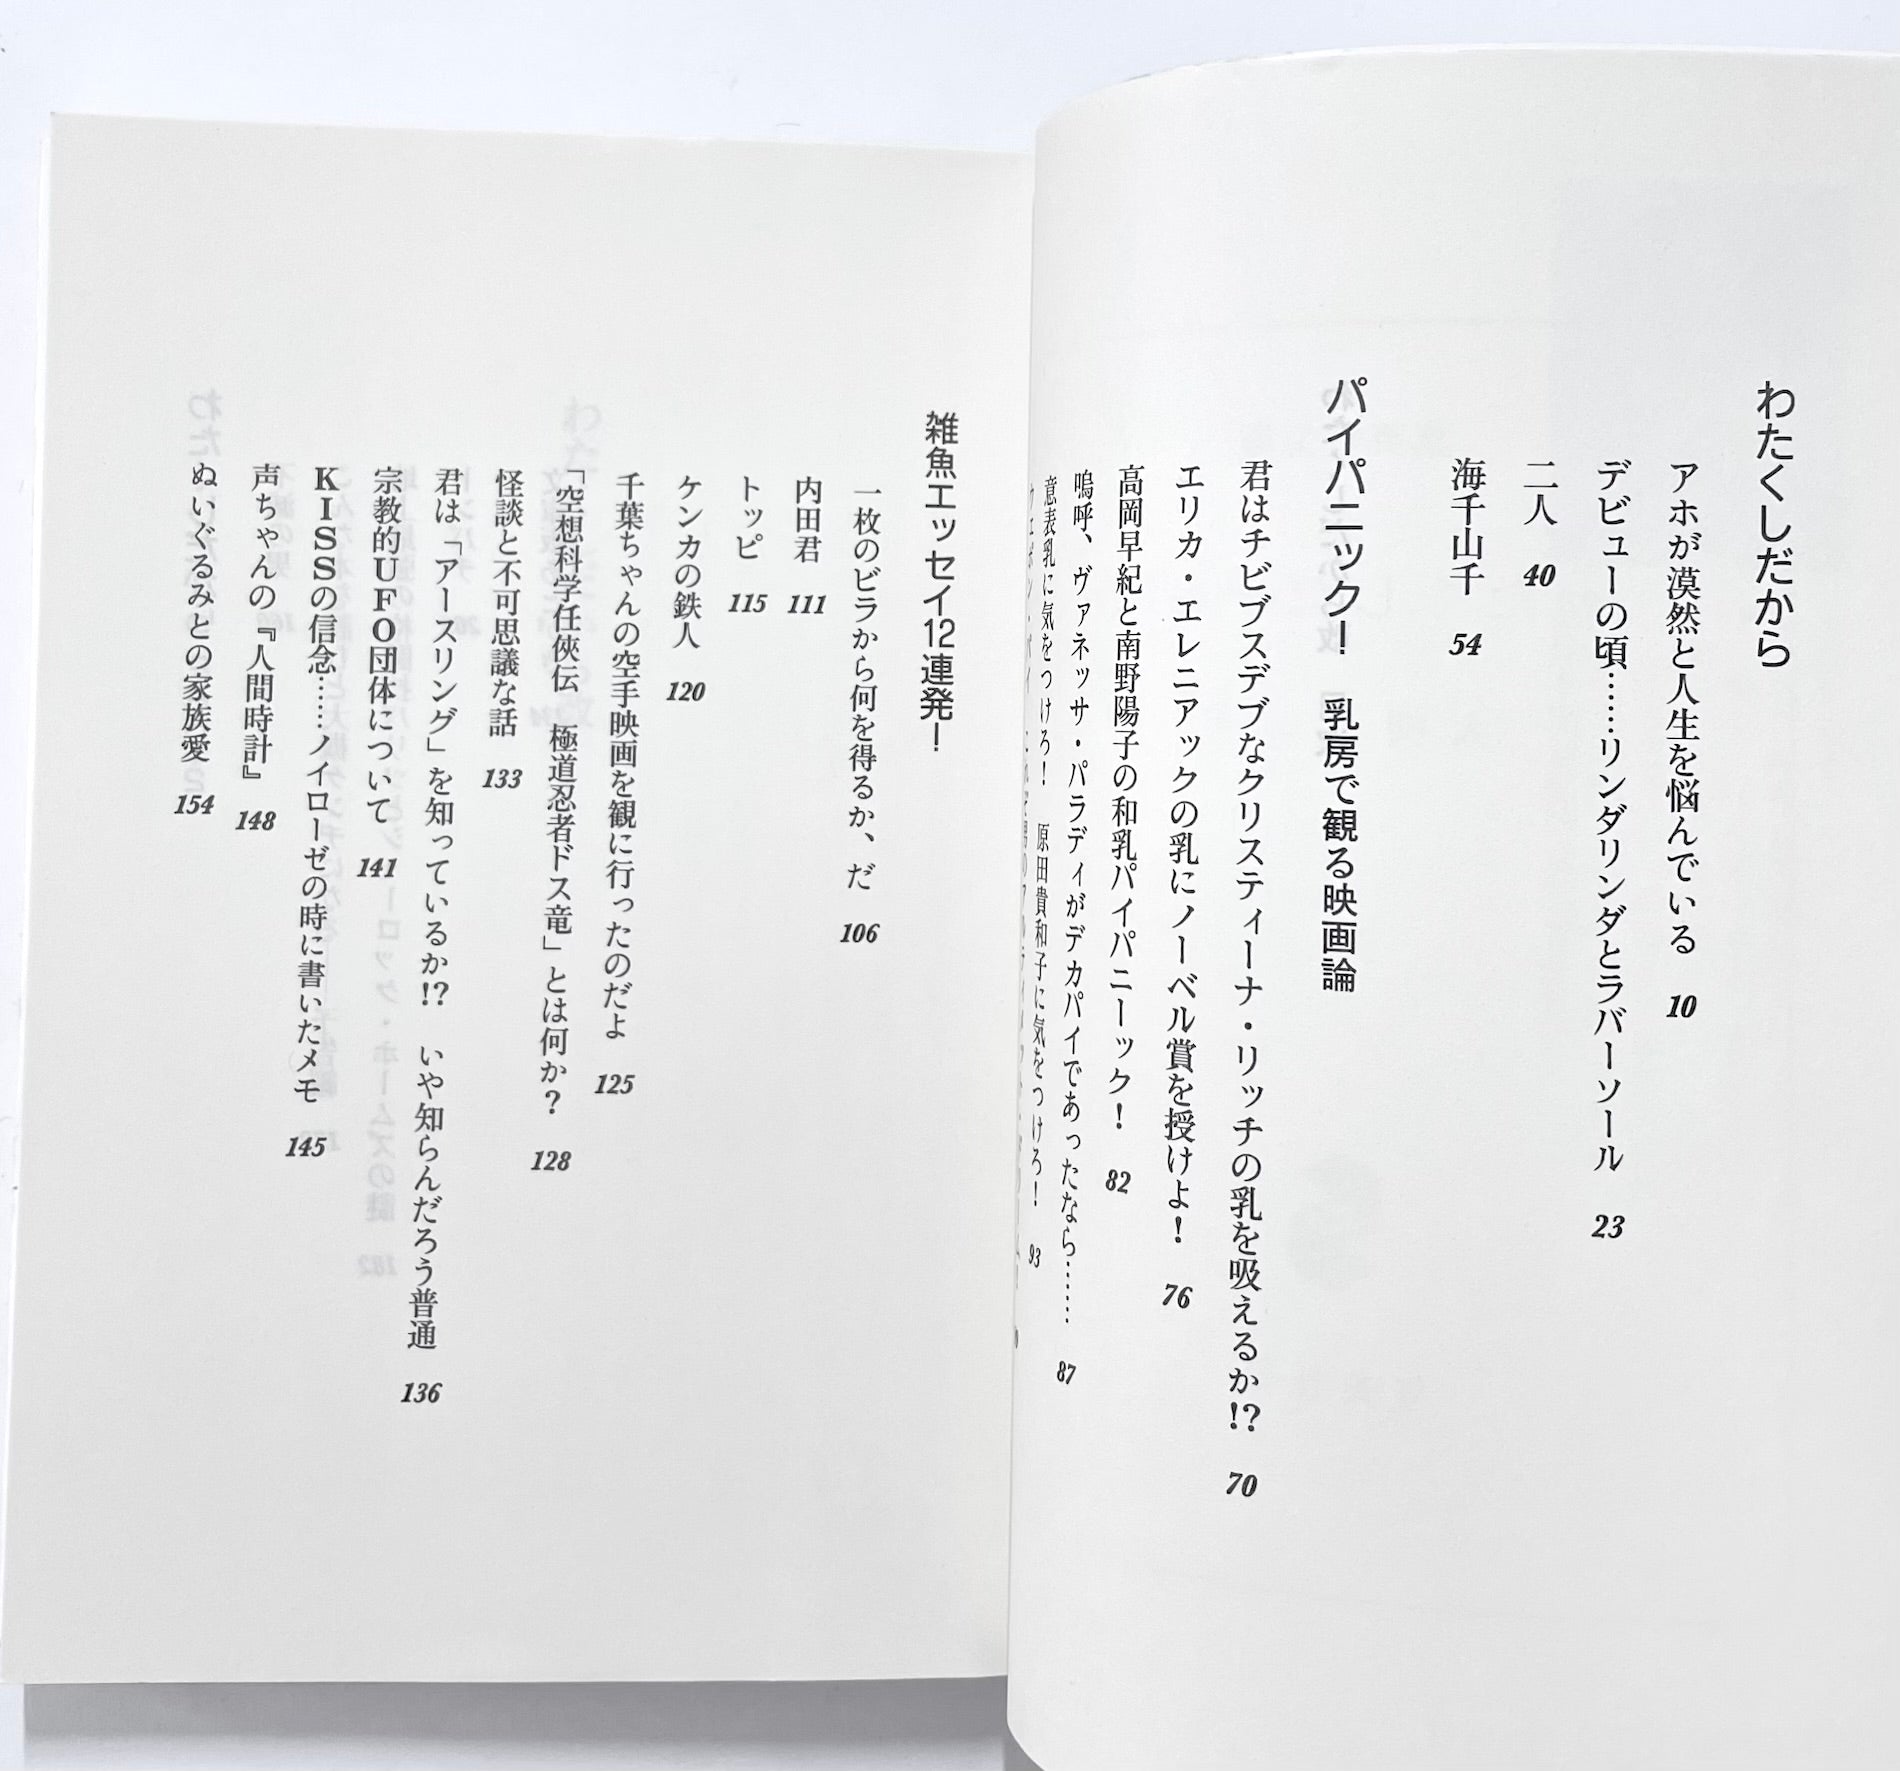 わたくしだから
アホが漠然と人生を悩んでいる 10
デビューの頃……リンダリンダとラバーソール 23
二人 40
海千山千 54
パイパニック！ 乳房で観る映画論
君はチビブスデブなクリスティーナ・リッチの乳を吸えるか!? 70
エリカ・エレニアックの乳にノーベル賞を授けよ！ 76
高岡早紀と南野陽子の和乳パイパニーック！ 82
嗚呼、ヴァネッサ・パラディがデカパイであったなら…… 87
意表乳に気をつけろ！ 原田貴和子に気をつけろ！ 93
雑魚エッセイ12連発！
一枚のビラから何を得るか、だ 106
内田君 111
トッピ 115
ケンカの鉄人 120
千葉ちゃんの空手映画を観に行ったのだよ 125
「空想科学任俠伝 極道忍者ドス竜」とは何か？ 128
怪談と不可思議な話 133
君は「アースリング」を知っているか!? いや知らんだろう普通 136
宗教的UFO団体について 141
KISSの信念……ノイローゼの時に書いたメモ 145
声ちゃんの『人間時計』 148
ぬいぐるみとの家族愛 154